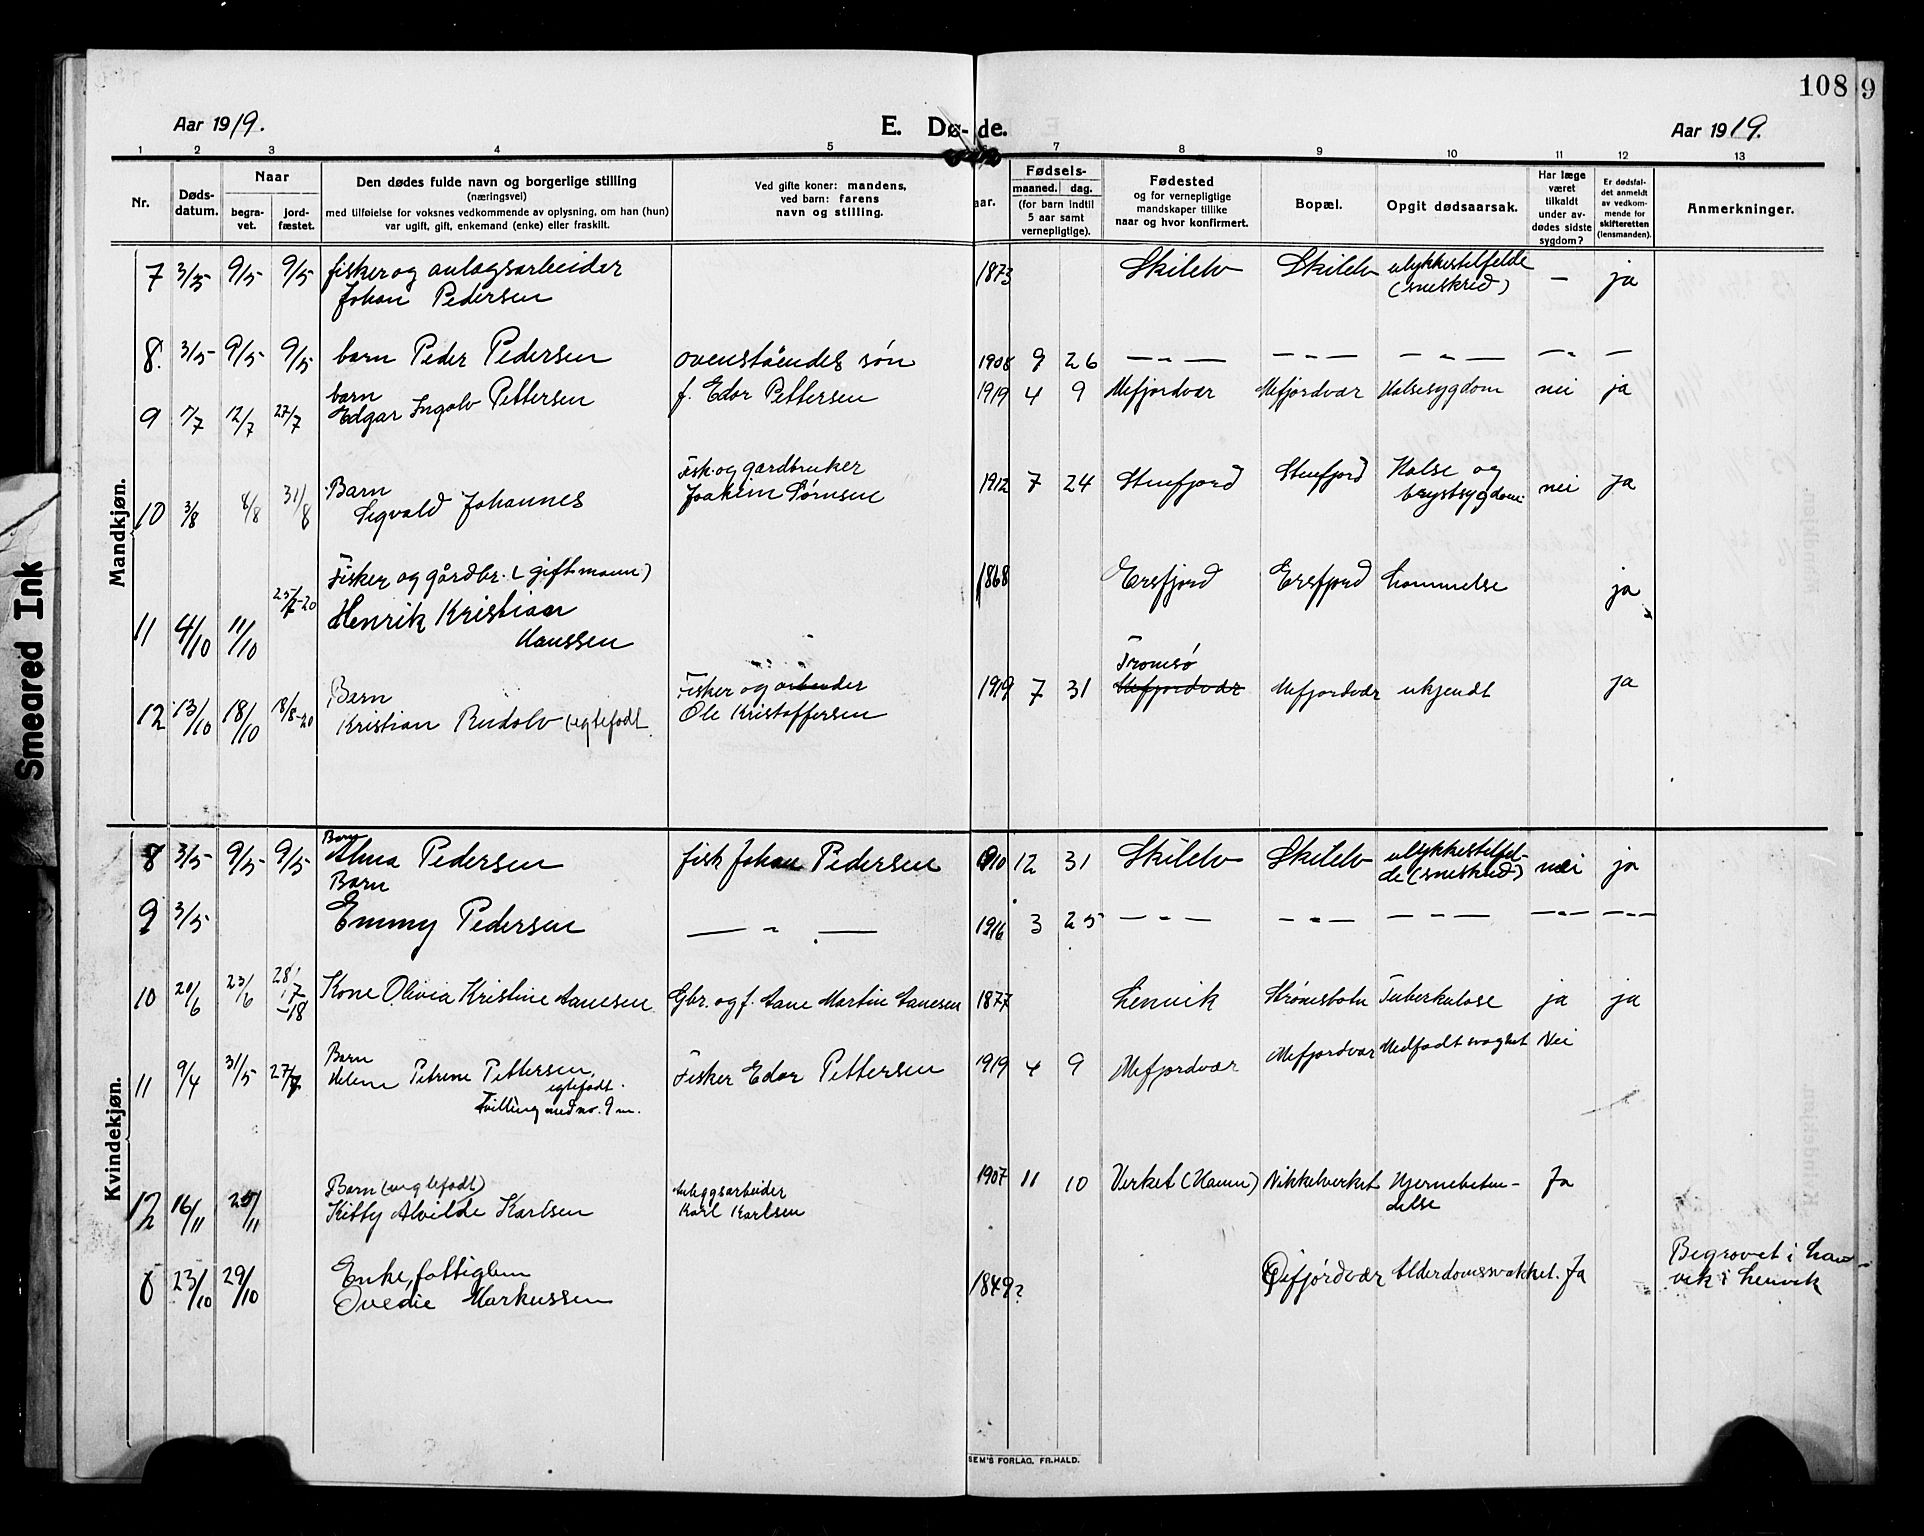 108 9
Aar 1919. E. Dø- de. Aar 1919.
1 2 3 4 5 7 8 9 10 11 12 13
Nr. Døds-datum. Naar begra-vet. jord-fæstet. Den dødes fulde navn og borgerlige stilling (næringsvei) med tilføielse for voksnes vedkommende av oplysning, om han (hun) var ugift, gift, enkemand (enke) eller fraskilt. Ved gifte koner: mandens, ved barn: farens navn og stilling. aar. Fødsels- maaned. dag. (for barn indtil 5 aar samt vernepligtige). Fødested og for vernepligtige mandskaper tillike naar og hvor konfirmert. Bopæl. Opgit dødsaarsak. Har læge været tilkaldt under av-dødes sidste sygdom? Er dødsfal-det anmeldt av vedkom-mende for skifteretten (lensmanden). Anmerkninger.
Mandkjøn.
7 3/5 9/5 9/5 fisker og anlægsarbeider 1873 Skilelv Skilelv ulykkestilfelde — ja
Johan Pedersen (sneskred)
8. 3/5 9/5 9/5 barn Peder Pedersen ovenståendes søn 1908 9 26 — „ — — „ — — „ — — „ — —
barn
9 7/7 12/7 27/7 Edgar Ingolv Pettersen f. Edor Pettersen 1919 4 9 Mefjordvær Mefjordvær Halsesygdom nei ja
Barn Fisk. og gardbruker
10 3/8 8/8 31/8 Sigvald Johannes Joakim Sørnsen 1912 7 24 Stenfjord Stenfjord Halse og brystsygdom nei ja
Fisker og gårdbr. (gift mann) 1868 Ersfjord Ersfjord ja
11 4/10 11/10 25/2-20 Henrik Kristian
Hanssen
Tromsø
Barn Fisker og arbeider 1919 7 31 Mefjordvær Mefjordvær ukjendt ja
12 13/10 18/10 18/8-20 Kristian Rudolv (egtefødt Ole Kristoffersen
Kvindekjøn.
Barn
8 3/5 9/5 9/5 Alma Pedersen fisk Johan Pedersen 1910 12 31 Skilelv Skilelv ulykkestilfel-de (sneskred) nei ja
Barn
9 3/5 Emmy Pedersen — „ — 1916 3 25 — „ — — „ — — „ — — „ — — „ —
10 20/6 23/6 28/7-18 Kone Olivia Kristine Aanesen Gbr. og f. Aane Martin Aanesen 1877 Lenvik Strømsbotn Tuberkulose ja ja
Barn
11 9/4 31/5 27/7 Helene Petrine Pettersen, Fisker Edor Pettersen 1919 4 9 Mefjordvær Mefjordvær Medfødt svaghet Nei
egtefødt.
Tvilling med no. 9 m.
Barn (uegtefødt) Anleggsarbeider 1907 11 10 Verket (Hamn) Nikkelverket Hjernebeten-delse Ja
12 16/11 25/11 Kitty Alvilde Karlsen Karl Karlsen
8 23/10 29/10 Enke, fattiglem 1849? Øifjordvær Alderdomssvakhet. Ja Begravet i
Ovedie Markussen vik i Lenvik
SEM'S FORLAG, FR.HALD.
Smeared Ink